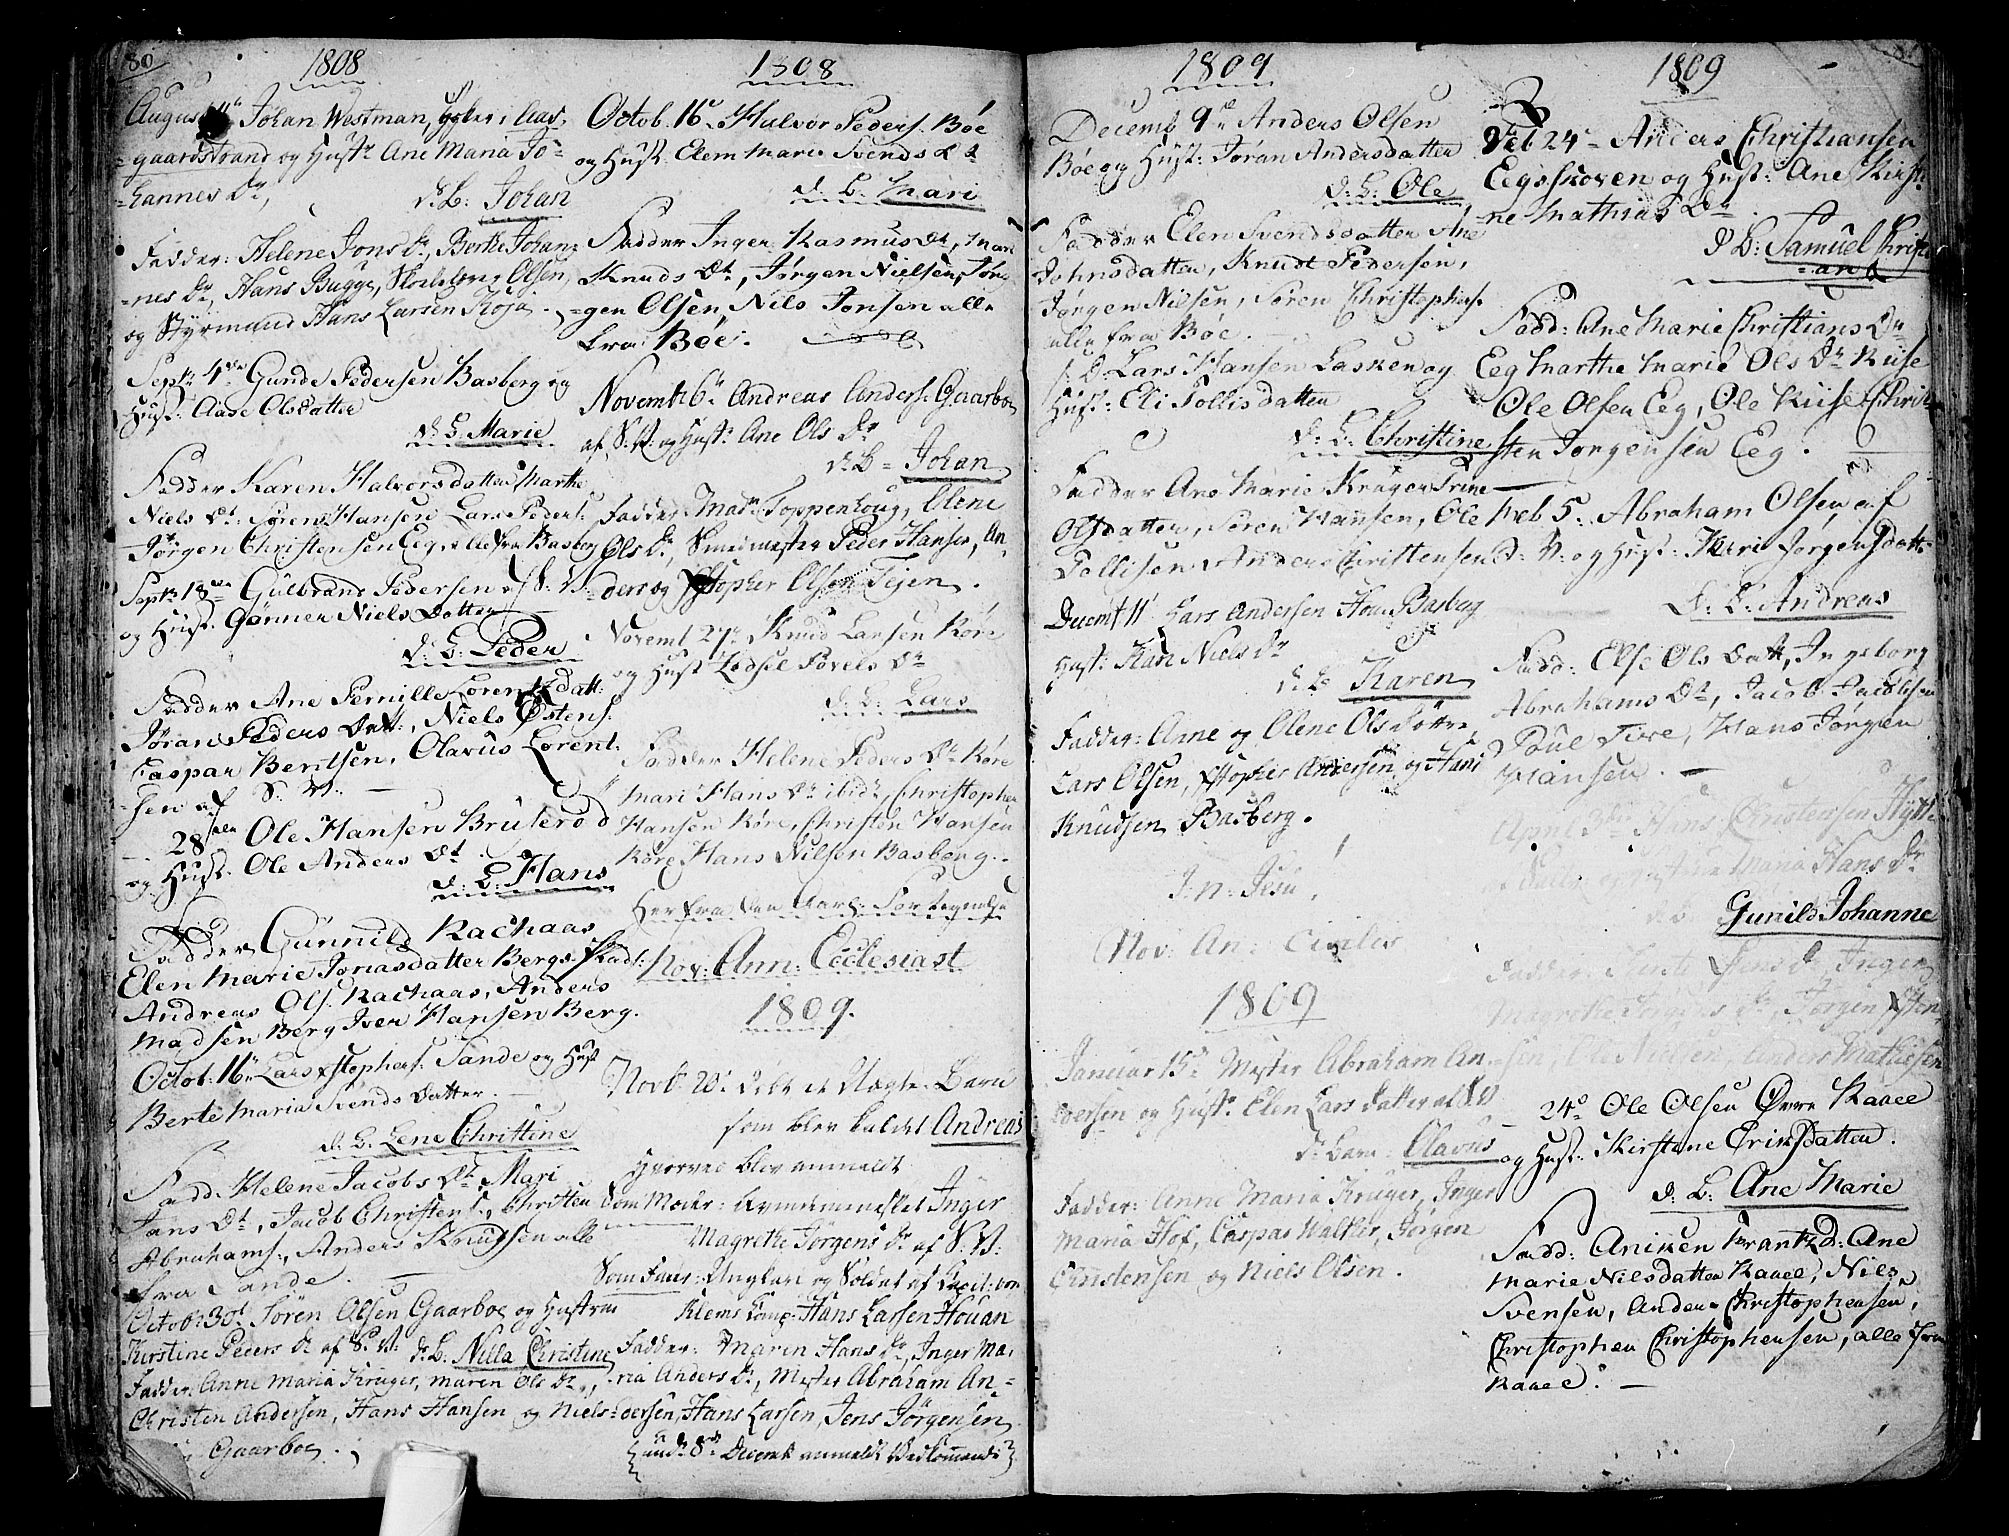 80
1808
August Johan Westman, i Aas,
=gaardstrand og Hustr Ane Maria Jo=
hannes Dr,
d: B: Johan
Fadder: Helene Jons Dr, Berthe Johan,
=nes Dr, Hans Bugge, Olsen,
og Styrmand Hans Larsen
Septr 4de Gunde Pedersen Basberg og
Hust: Aase Olsdatter
d: B: Marie
Fadder Karen Halvorsdatter Marthe
Niels Dt: Søren Hansen Lars Peders:
Jørgen Christensen Eeg, alle fra Basberg
Septr 18 Gulbrand Pedersen af S: V:
og Hust. Gunner Niels Datter
d: B: Peder
Fadder Ane Pernille Lorentzdatt:
Jøran Peders Datt:, Niels Østens:
Caspar Bentsen, Olavus Lorent=
=sen af S: V:
28 Ole Hansen Bruserød
og Hust. Ole Anders Dt.
d: B: Hans
Fadder Gunnild Rachaas
Elen Marie Jonasdatter Berg
Andreas Ols. Rachaas, Anders
Madsen Berg Iver Hansen Berg.
Octob: 16 Lars Xstophers. Sande og Hust
Berte Maria Svends Datter.
d: B: Lene Christine
Fadd: Helene Jacobs Dt Mari
Jans Dt, Jacob Christens., Christen
Abrahams., Anders Knudsen alle
fra Sande.
Octob: 30t Søren Olsen Gaarboe og Hustrue
Kirstine Peders Dr af S: V: d: B: Nilla Christine
Fadder: Anne Maria Krüger, Maren Ols Dr,
Christen Andersen, Hans Hansen og Niels
Gaarboe.
1808
Octob. 16 Halvor Peders. Bøe
og Hust. Elem Marie Svends Dt
d: B. Mari
Fadder Inger Rasmus Dt, Mari
Knuds Dt, Jørgen Nielsen, Jør=
=gen Olsen, Nils Jonsen alle
fra Bøe.
Novemb: 6 Andreas Anders: Gaarboe
af S: V: og Hust: Ane Ols Dr
d: B= Johan
Fadder Mad: Toppenhoug, Olene
Ols Dr, Smedmester Peder Hansen, An=
=ders og Xstopher Olsen Teien.
Novemb 27 Knud Larsen Røre
og Hust Lodsel Povels Dr
d: B: Lars
Fadder Helene Peders Dr Røre
Mari Hans Dr ibid, Christopher
Hansen Røre, Christen Hansen
Røre Hans Nilsen Basberg.
Her fra den Aarl: Fortegnelse
Nov: Ann: Ecclesiast
1809.
Novb: 20 døbt et Uægte Barn
som blev kaldet Andreas
Hvorved blev anmeldt
Som Moder: Qvindemennesket Inger
Magrethe Jørgens Dr af S: V:
Som Fader: Ungkarl og Soldat af Capit: von
Klems Comp: Hans Larsen Houan
Fadder: Maren Hans Dr, Inger Ma=
ria Anders Dr, Mester Abraham An=
=dersen, Hans Larsen, Jens Jörgensen
8 Decemb anmeldt Vedkommende
1809
Decemb 9 Anders Olsen
Bøe og Hust: Jøran Andersdatter
d: B: Ole
Fadder Elen Svendsdatter Ane
Johnsdatter, Knudt Pedersen,
Jørgen Nilsen, Søren Christophers.
alle fra Bøe.
s: D: Lars Hansen Lasken og
Hust: Eli Tollisdatter
d: B: Christine
Fadder Ane Marie Krüger Trine
Olsdatter, Søren Hansen, Ole
Tollisen Anders Christensen
Decemb 11 Lars Andersen Hou Basberg
Hust: Kari Niels Dr
d: B. Karen
Fadder: Anne og Olene Ols Døttre,
Lars Olsen, Xstopher Andersen og Hans
Knudsen Basberg.
I: n: Jesu,
Nov: An: Civilis
1809
Januar 15 Mester Abraham An=
dersen og Hustr Elen Lars datter af S: V:
d: Barn= Olavus
Fadder: Anne Maria Krüger, Inger
Maria Hof, Caspar Halkier, Jørgen
Christensen og Niels Olsen.
1809
Feb 24 Anders Christiansen
Eegsskoven og Hust: Ane Kirsti=
ne Mathias Dr.
d B: Samuel Christi=
=an
Fadd: Ane Marie Christians Dr
Eeg Marthe Marie Ols Dr Kiise
Ole Olsen Eeg, Ole Kiise Chri=
sten Jørgensen Eeg.
Feb 5. Abraham Olsen af
S: V: og Hust: Kari Jørgensdatt:
d: B: Andreas
Fadd: Else Ols Datt, Ingeborg
Abrahams Dt, Jacob Jacobsen
Poul Hans Jørgen
Hansen.
April 3 Hans Christensen
Maria Hans Dr
Gunild Johanne
Fadder: Inger
Magrethe Jørgens Dr, Jørgen Xsten=
=sen, Ole Nielsen, Anders Mathiesen
24 Ole Olsen Øvre Raaee
og Hust: Kirstine Eriksdatter.
d: B: Ane Marie
Fadd: Aniken Frantz D: Ane
Marie Nilsdatter Raaee, Nils
Svensen, Anders Christophersen,
Christopher Christophersen, alle fra
Raaee.